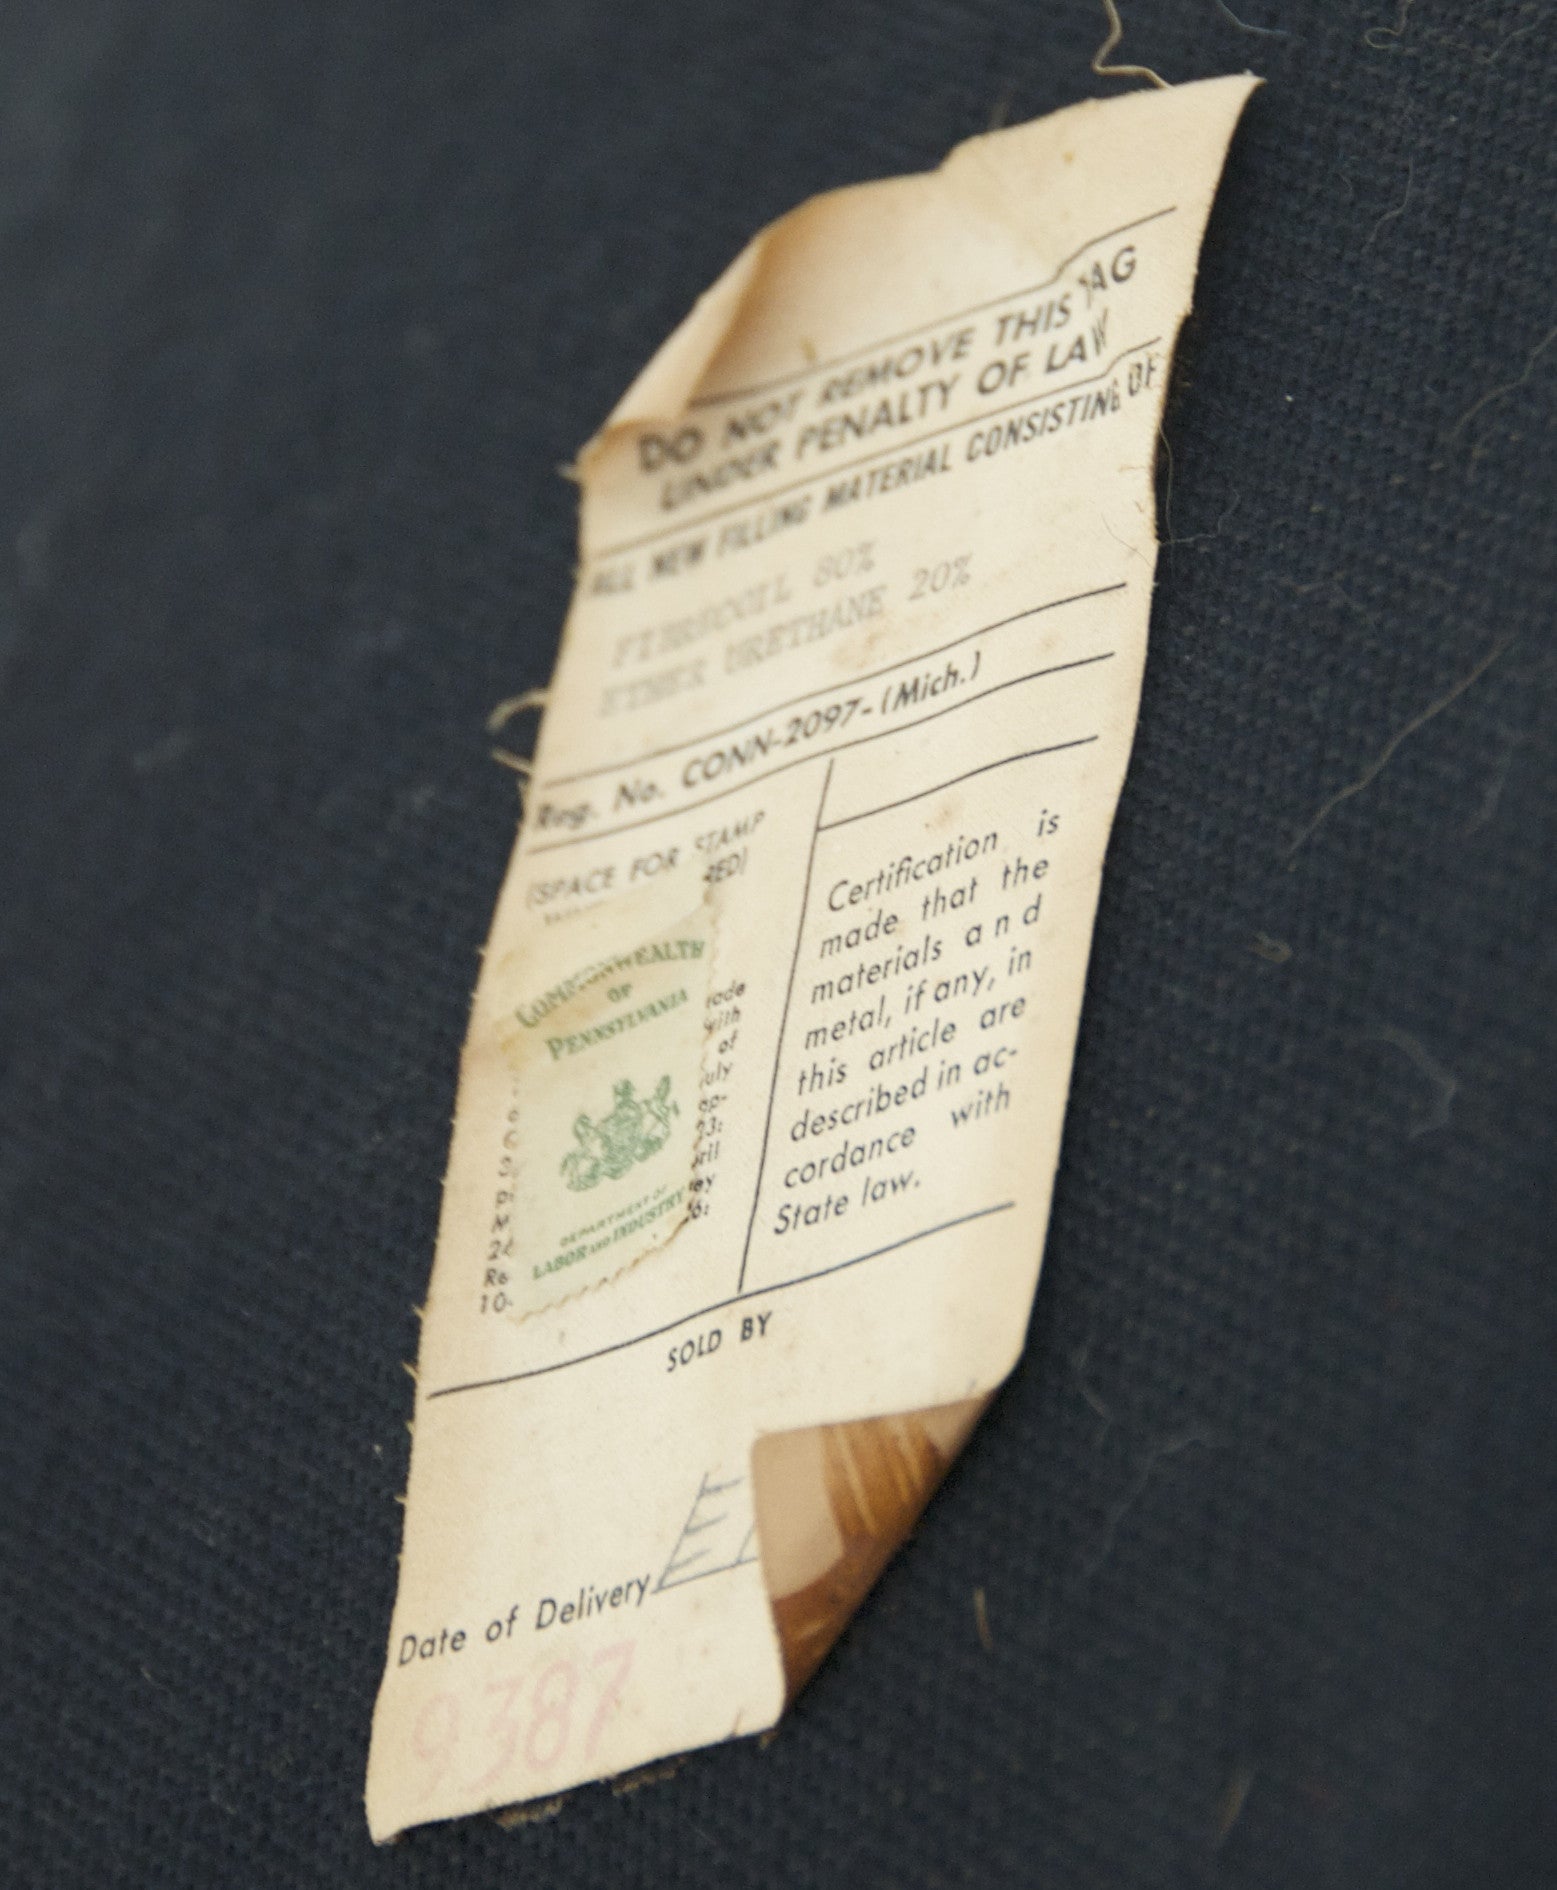 DO NOT REMOVE THIS TAG
UNDER PENALTY OF LAW
ALL NEW FILLING MATERIAL CONSISTING OF
FIBRECOIL 80%
ETHER URETHANE 20%
Reg. No. CONN-2097-(Mich.)
(SPACE FOR STAMP
RED)
COMMONWEALTH
OF
PENNSYLVANIA
DEPARTMENT OF
LABOR AND INDUSTRY
ade
with
of
uly
op-
23:
ril
ey
6:
Re
10-
Certification is
made that the
materials and
metal, if any, in
this article are
described in ac-
cordance with
State law.
SOLD BY
Date of Delivery
9387